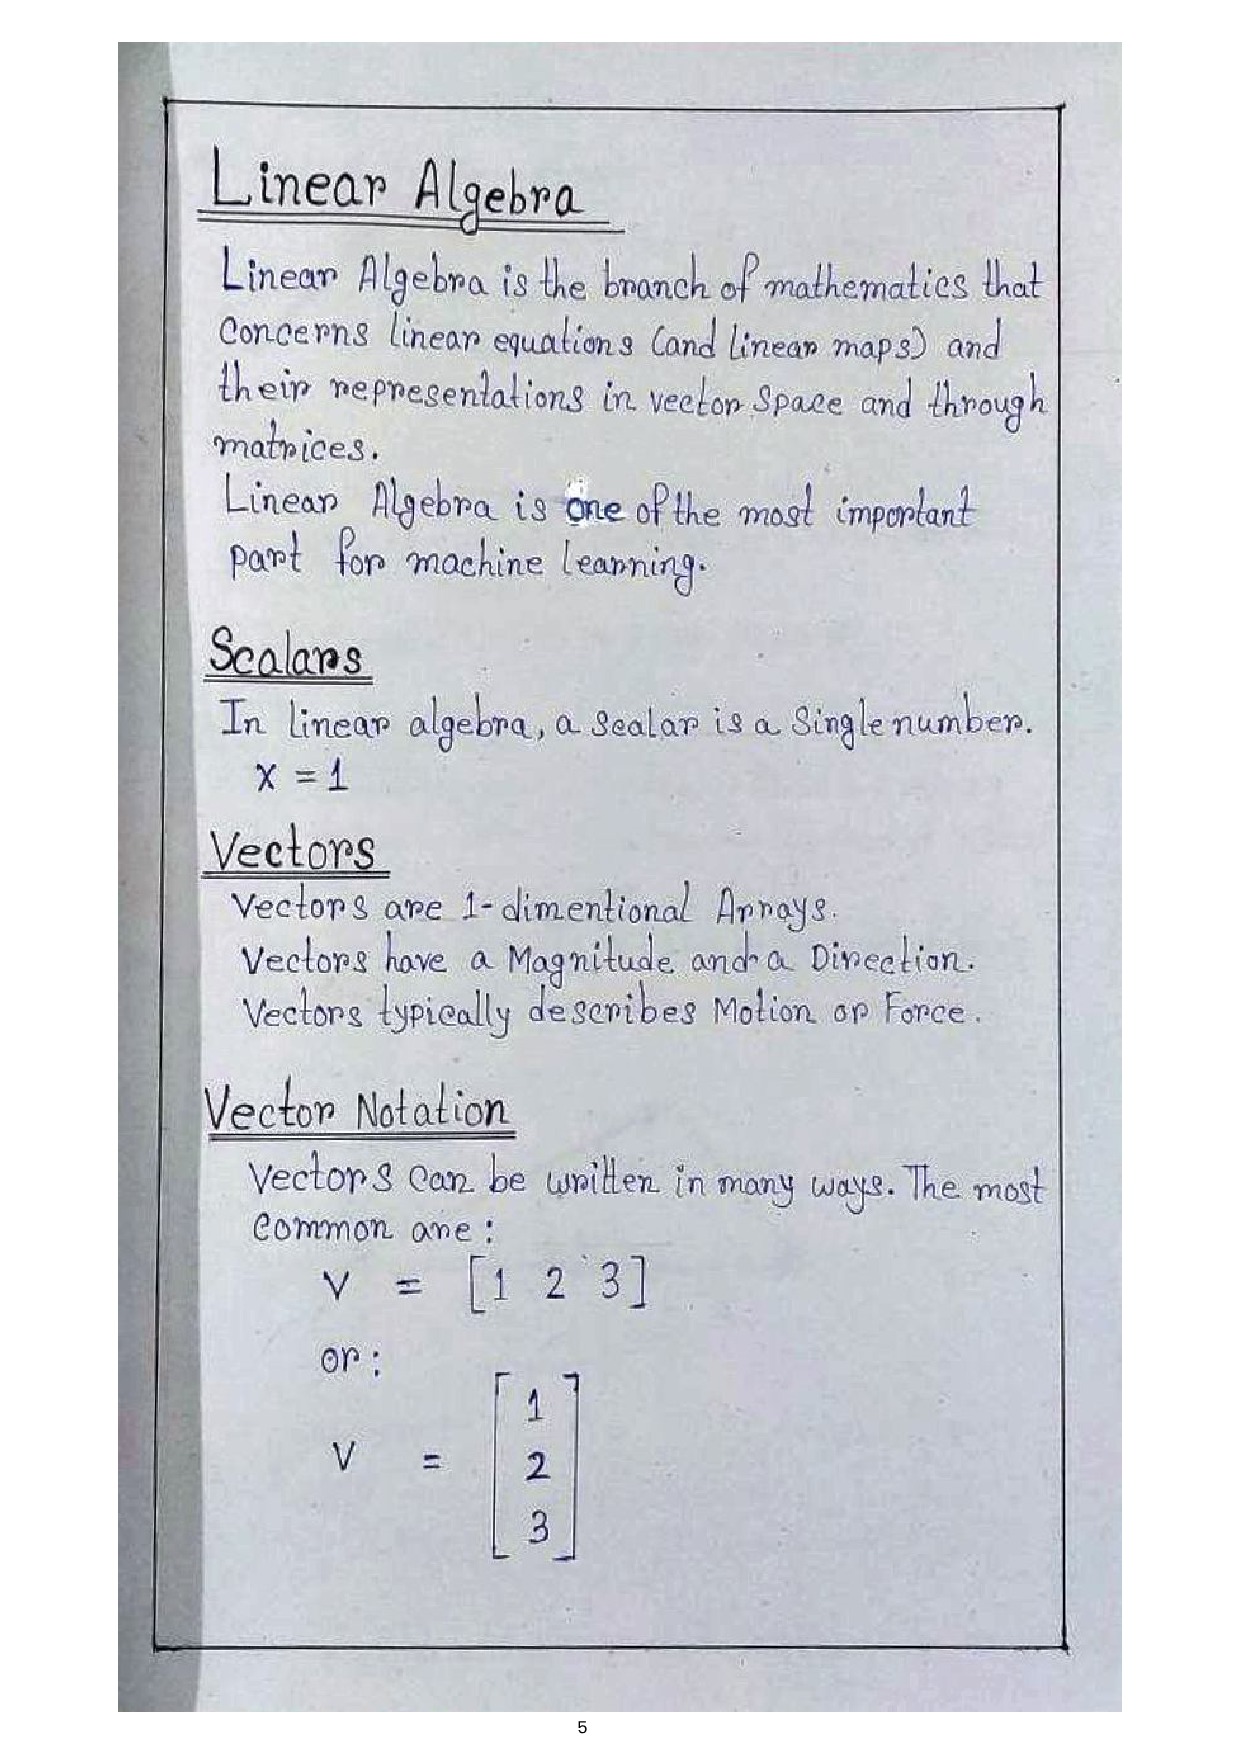 Linear Algebra
Linear Algebra is the branch of mathematics that
concerns linear equations (and linear maps) and
their representations in vector space and through
matrices.
Linear Algebra is one of the most important
part for machine learning.
Scalars
In linear algebra, a scalar is a single number.
x = 1
Vectors
Vectors are 1-dimentional Arrays.
Vectors have a Magnitude and a Direction.
Vectors typically describes Motion or Force.
Vector Notation
Vectors can be written in many ways. The most
common are:
V = [1 2 3]
or:
V = [
1
2
3
]
5